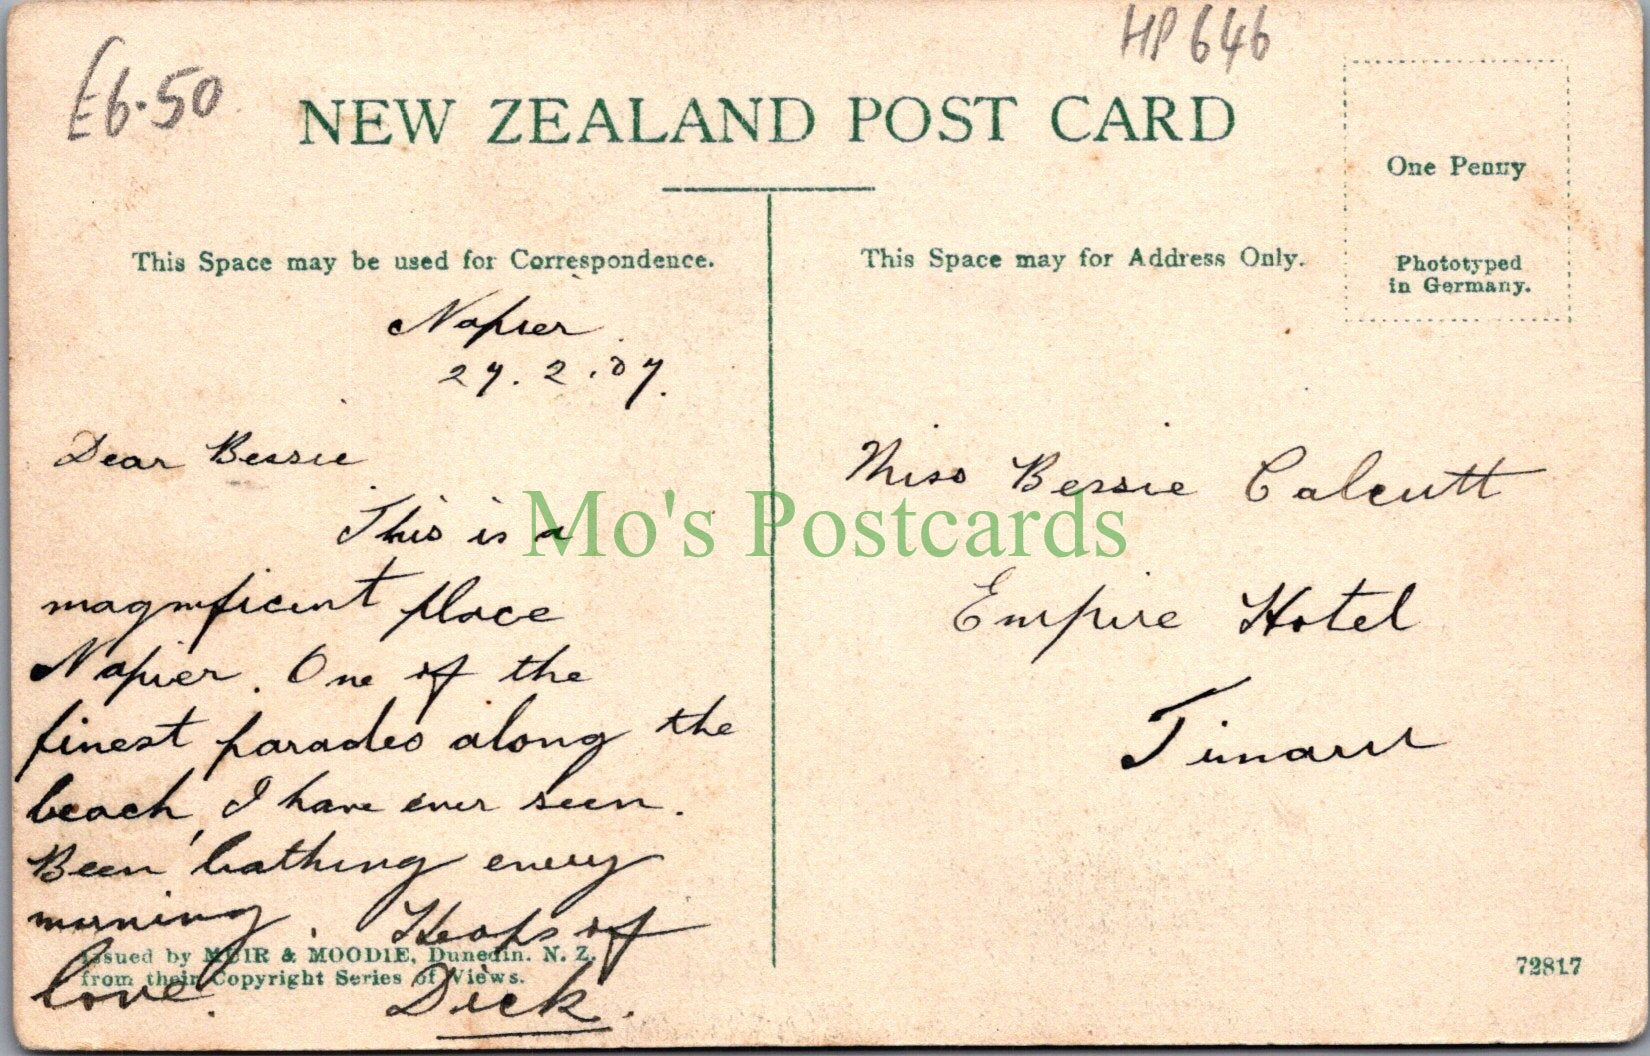 £6.50
HP 646
NEW ZEALAND POST CARD
One Penny
Phototyped
in Germany.
This Space may be used for Correspondence.
Napier
27.2.07.
Dear Bessie
This is a
magnificent place
Napier. One of the
finest parades along the
beach, I have ever seen.
Been bathing every
morning. Heaps of
love. Dick.
Issued by MUIR & MOODIE, Dunedin. N. Z.
from their Copyright Series of Views.
This Space may for Address Only.
Miss Bessie Calcutt
Empire Hotel
Timaru
72817
Mo's Postcards